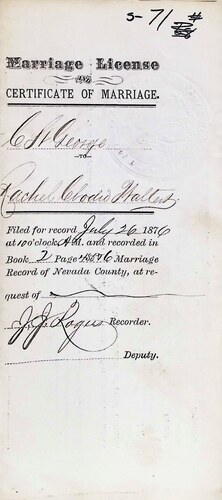 5-71 #
Marriage License
AND
CERTIFICATE OF MARRIAGE.
C W George
TO
Rachel Walters
Filed for record July 26 1876
at 10 o'clock A.M. and recorded in
Book 2 Page Marriage
Record of Nevada County, at re-
quest of
J. J. Rogers Recorder.
Deputy.